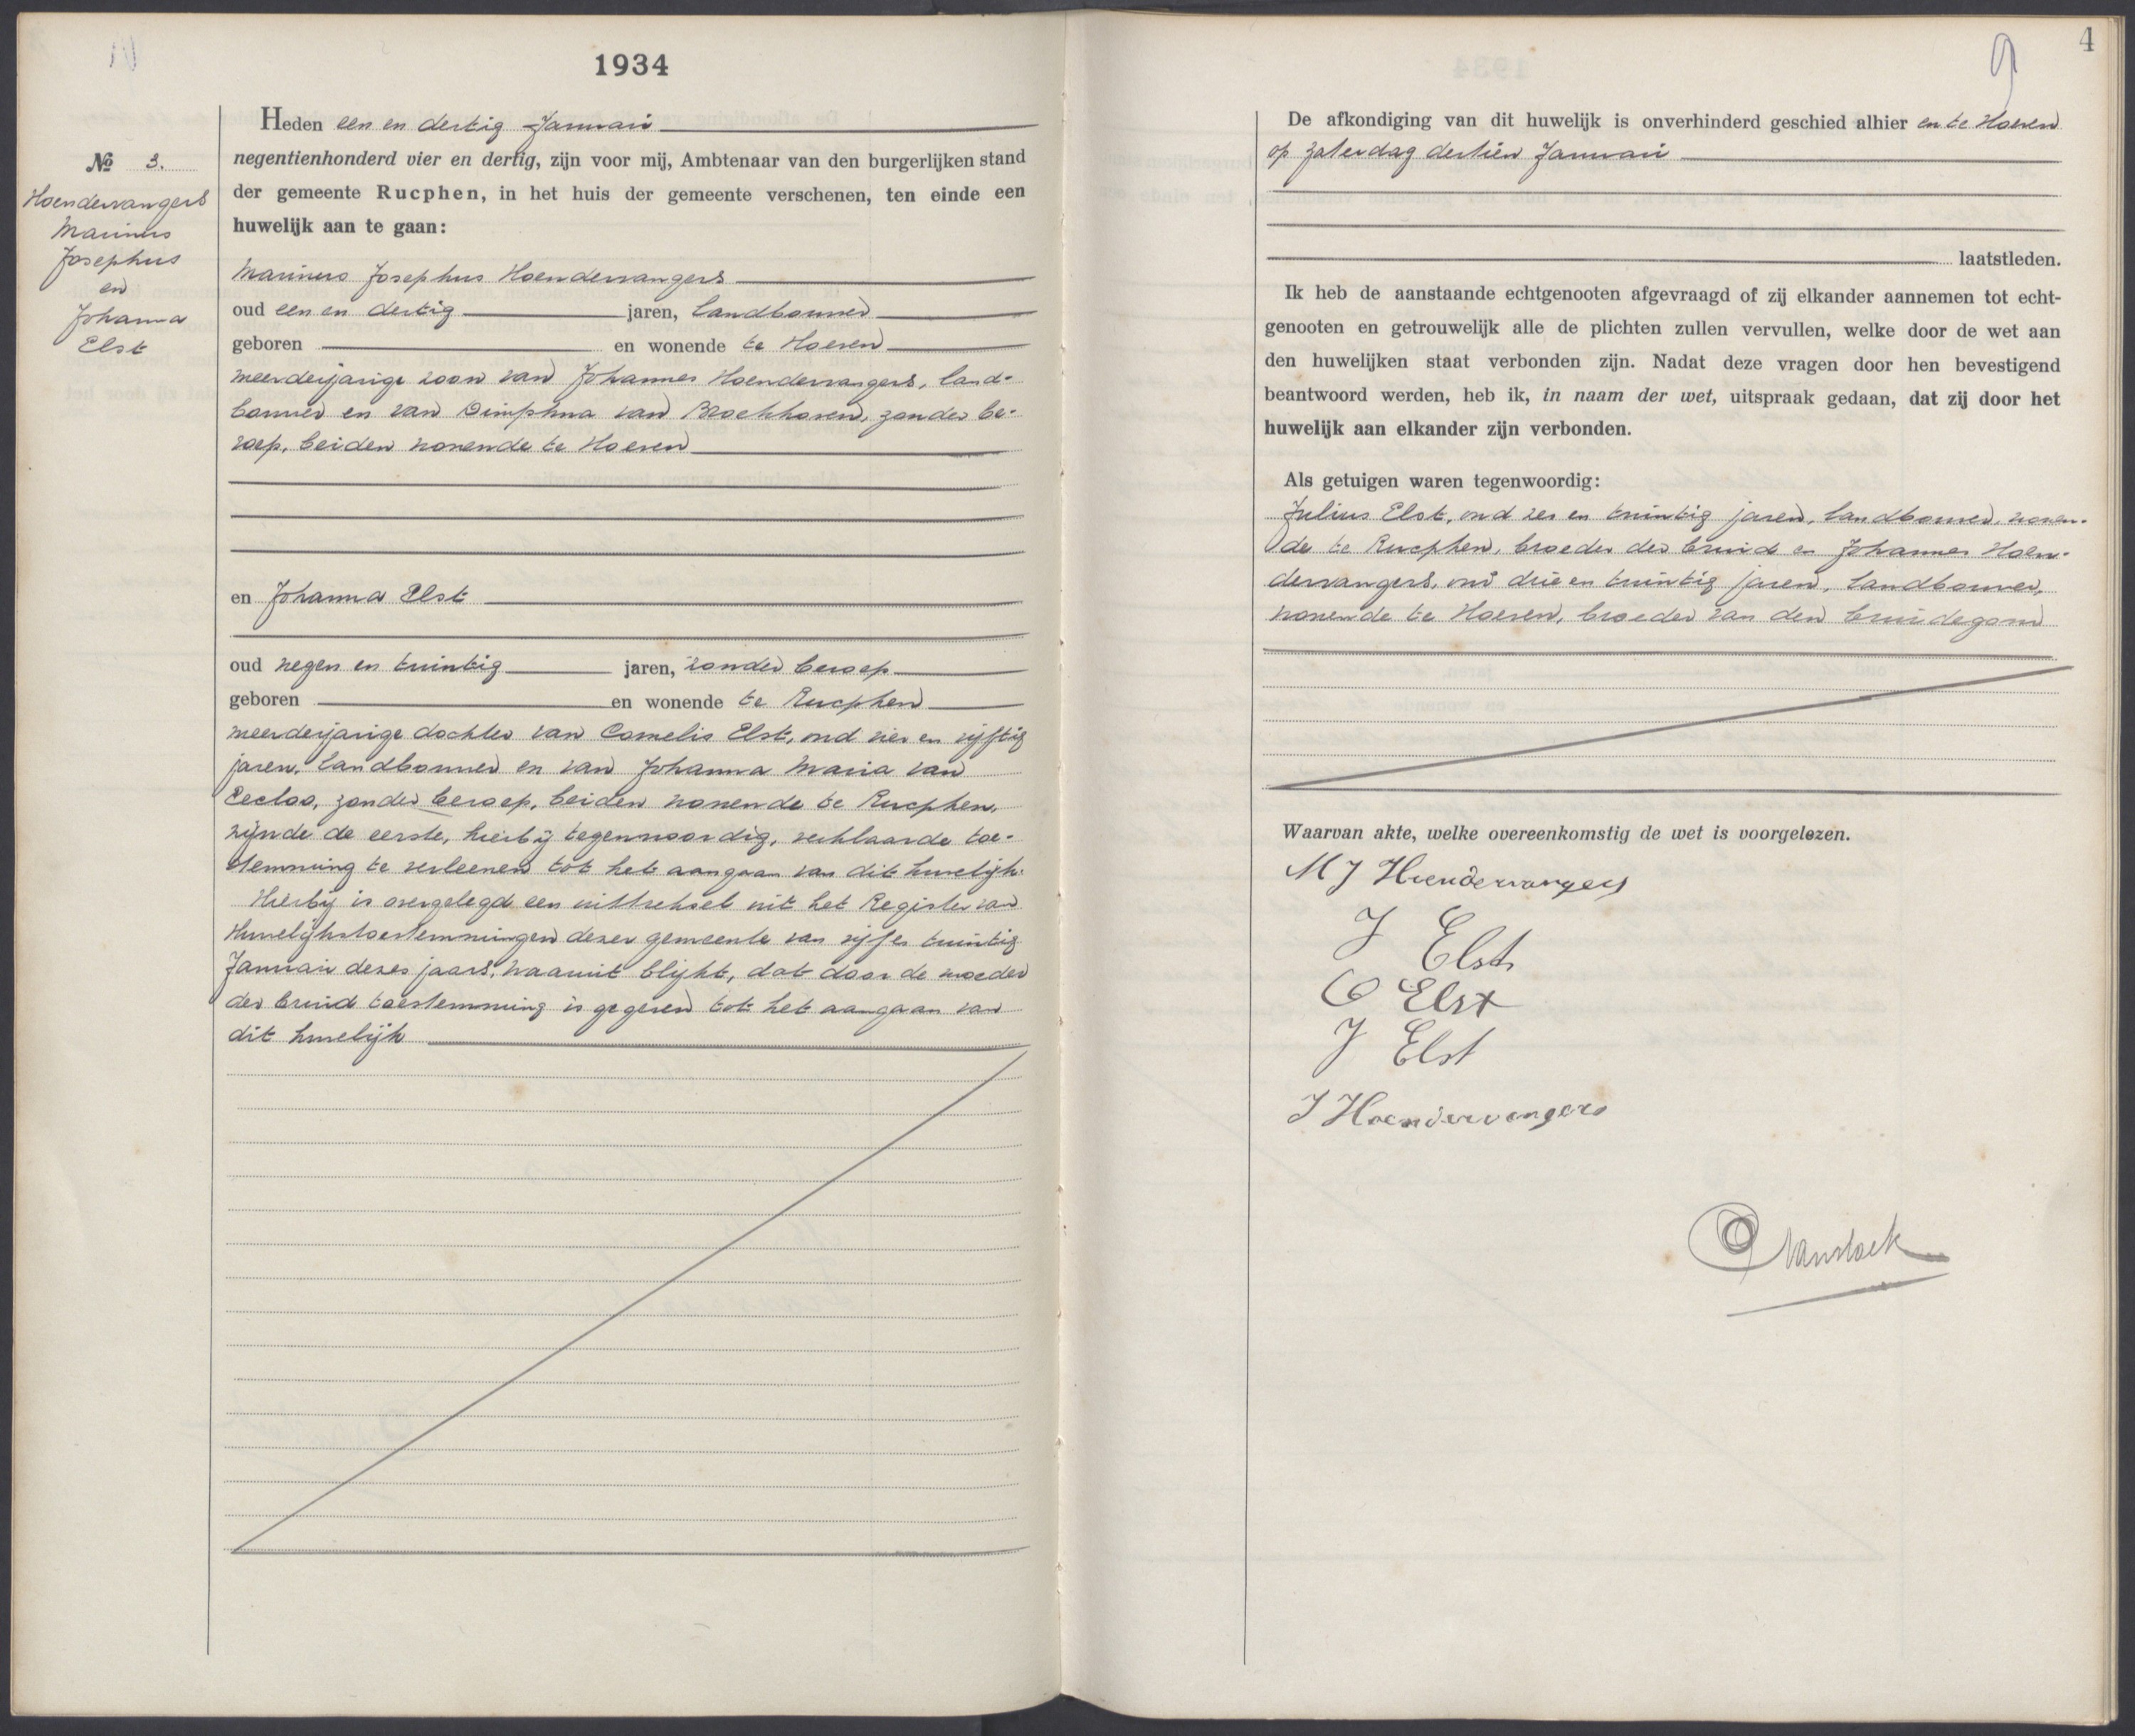 1934
Nº 3.
Hoendervangers
Marinus
Josephus
en
Johanna
Elst
Heden een en dertig Januari
negentienhonderd vier en dertig, zijn voor mij, Ambtenaar van den burgerlijken stand
der gemeente Rucphen, in het huis der gemeente verschenen, ten einde een
huwelijk aan te gaan:
Marinus Josephus Hoendervangers
oud een en dertig jaren, landbouwer
geboren en wonende te Hoeven
meerderjarige zoon van Johannes Hoendervangers, land-
bouwer en van Dimphna van Broekhoven, zonder be-
roep, beiden wonende te Hoeven
en Johanna Elst
oud negen en twintig jaren, zonder beroep
geboren en wonende te Rucphen
meerderjarige dochter van Cornelis Elst, oud vier en vijftig
jaren, landbouwer en van Johanna Maria van
Eecloo, zonder beroep, beiden wonende te Rucphen,
zijnde de eerste, hierbij tegenwoordig, verklaarde toe-
stemming te verleenen tot het aangaan van dit huwelijk.
Hierbij is overgelegd een uittreksel uit het Register van
Huwelijkstoestemmingen dezer gemeente van vijf en twintig
Januari dezes jaars, waaruit blijkt, dat door de moeder
der bruid toestemming is gegeven tot het aangaan van
dit huwelijk
4
9
De afkondiging van dit huwelijk is onverhinderd geschied alhier en te Hoeven
op zaterdag dertien Januari
laatstleden.
Ik heb de aanstaande echtgenooten afgevraagd of zij elkander aannemen tot echt-
genooten en getrouwelijk alle de plichten zullen vervullen, welke door de wet aan
den huwelijken staat verbonden zijn. Nadat deze vragen door hen bevestigend
beantwoord werden, heb ik, in naam der wet, uitspraak gedaan, dat zij door het
huwelijk aan elkander zijn verbonden.
Als getuigen waren tegenwoordig:
Julius Elst, oud zes en twintig jaren, landbouwer, wonen-
de te Rucphen, broeder der bruid en Johannes Hoen-
dervangers, oud drie en twintig jaren, landbouwer,
wonende te Hoeven, broeder van den bruidegom
Waarvan akte, welke overeenkomstig de wet is voorgelezen.
M J Hoendervangers
J Elst
C Elst
J Elst
J Hoendervangers